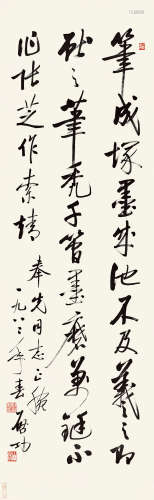 筆成塚墨成池不及羲之即
献之筆禿千管墨磨萬鋌不
作張芝作索靖 奉先同志正腕
一九八三年春 启功